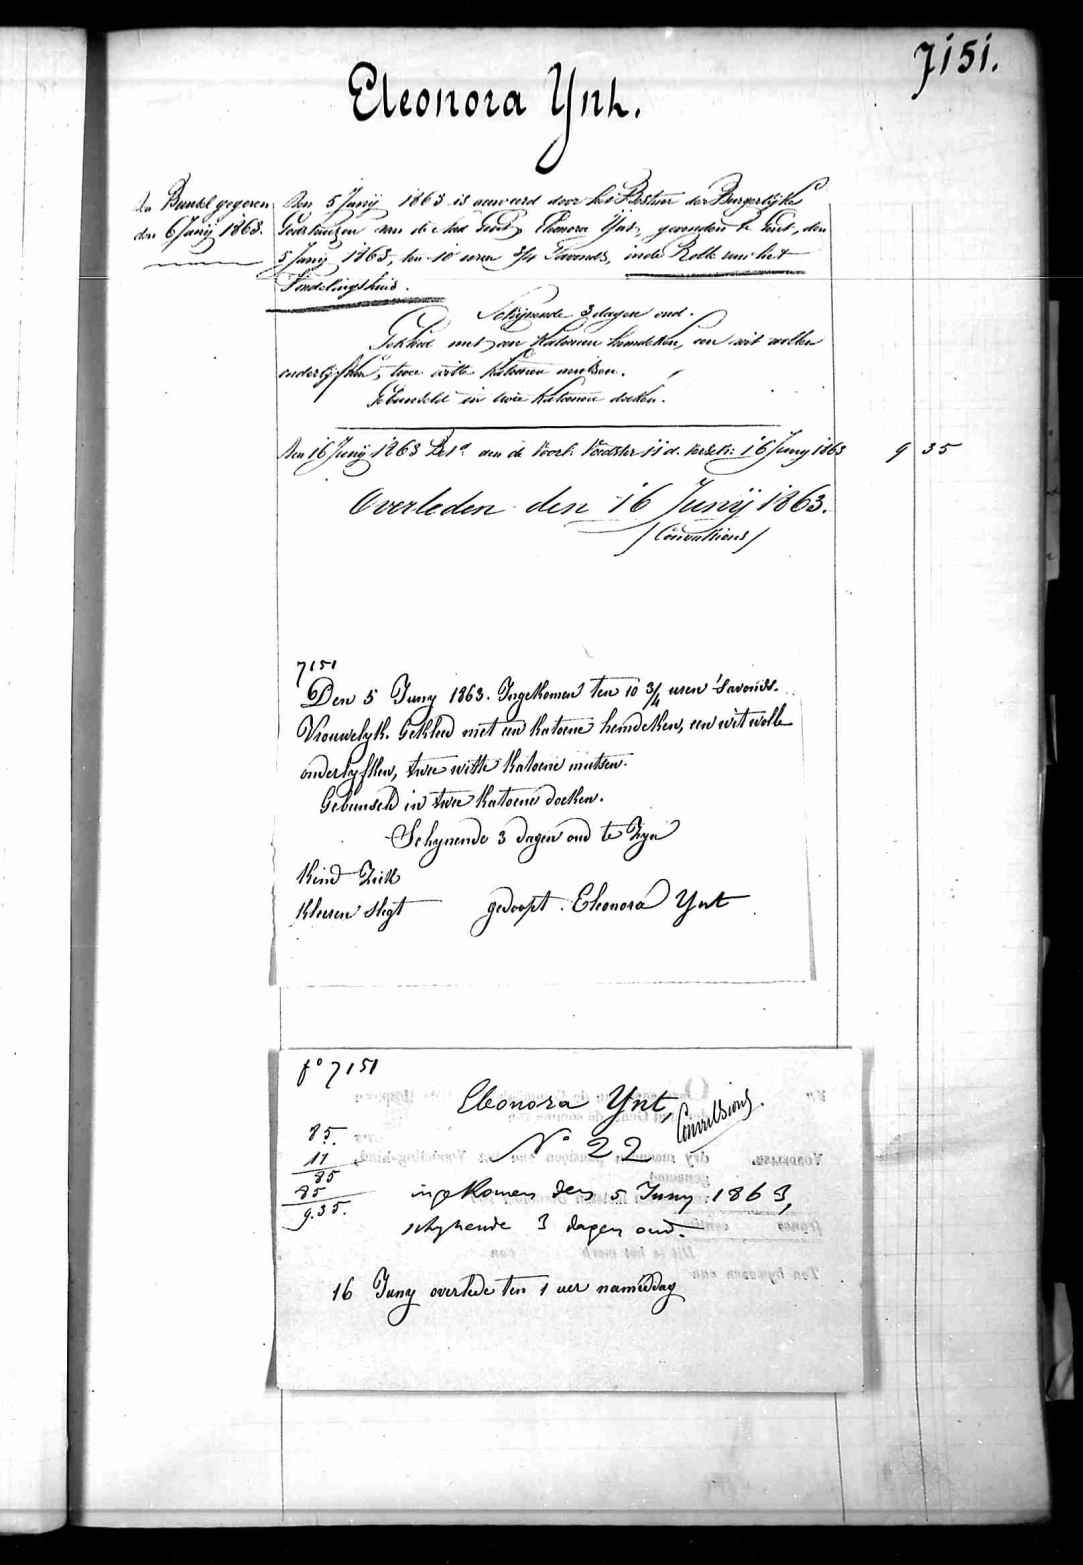 7151.
Eleonora Ynt.
gegeven
den 6 Junij 1863.
Den 5 Junij 1863 is aenveerd door het Bestier der Burgerlijke
Godshuizen van die stad Gent, Eleonora Ynt, gevonden te Gent, den
5 Junij 1863, ten 10 uren 3/4 's avonds, in de Rolle van het
Vondelingshuis.
Schijnende 3 dagen oud.
Gekleed met een Katoenen hemdeken, een wit wollen
onderlijfken, twee witte Katoenen mutsen.
Gebunseld in twee Katoenen doeken.
Den 16 Junij 1863 aen de Voedster 11 d. 16 Juny 1863 9 35
Overleden den 16 Junij 1863.
/Convulsions/
7151
Den 5 Juny 1863. Ingekomen ten 10 3/4 uren 's avonds.
Vrouwelyk. Gekleed met een katoene hemdeken, een wit wolle
onderlyfken, twee witte katoene mutsen.
Gebunseld in twee katoene doeken.
Schynende 3 dagen oud te zyn
Kind ziek
Kleeren slegt gedoopt. Eleonora Ynt
f° 7151
Eleonora Ynt,
Convulsions.
N° 22
85.
11
85
85
9.35.
ingekomen den 5 Juny 1863,
schynende 3 dagen oud.
16 Juny overlede ten 1 uer namiddag